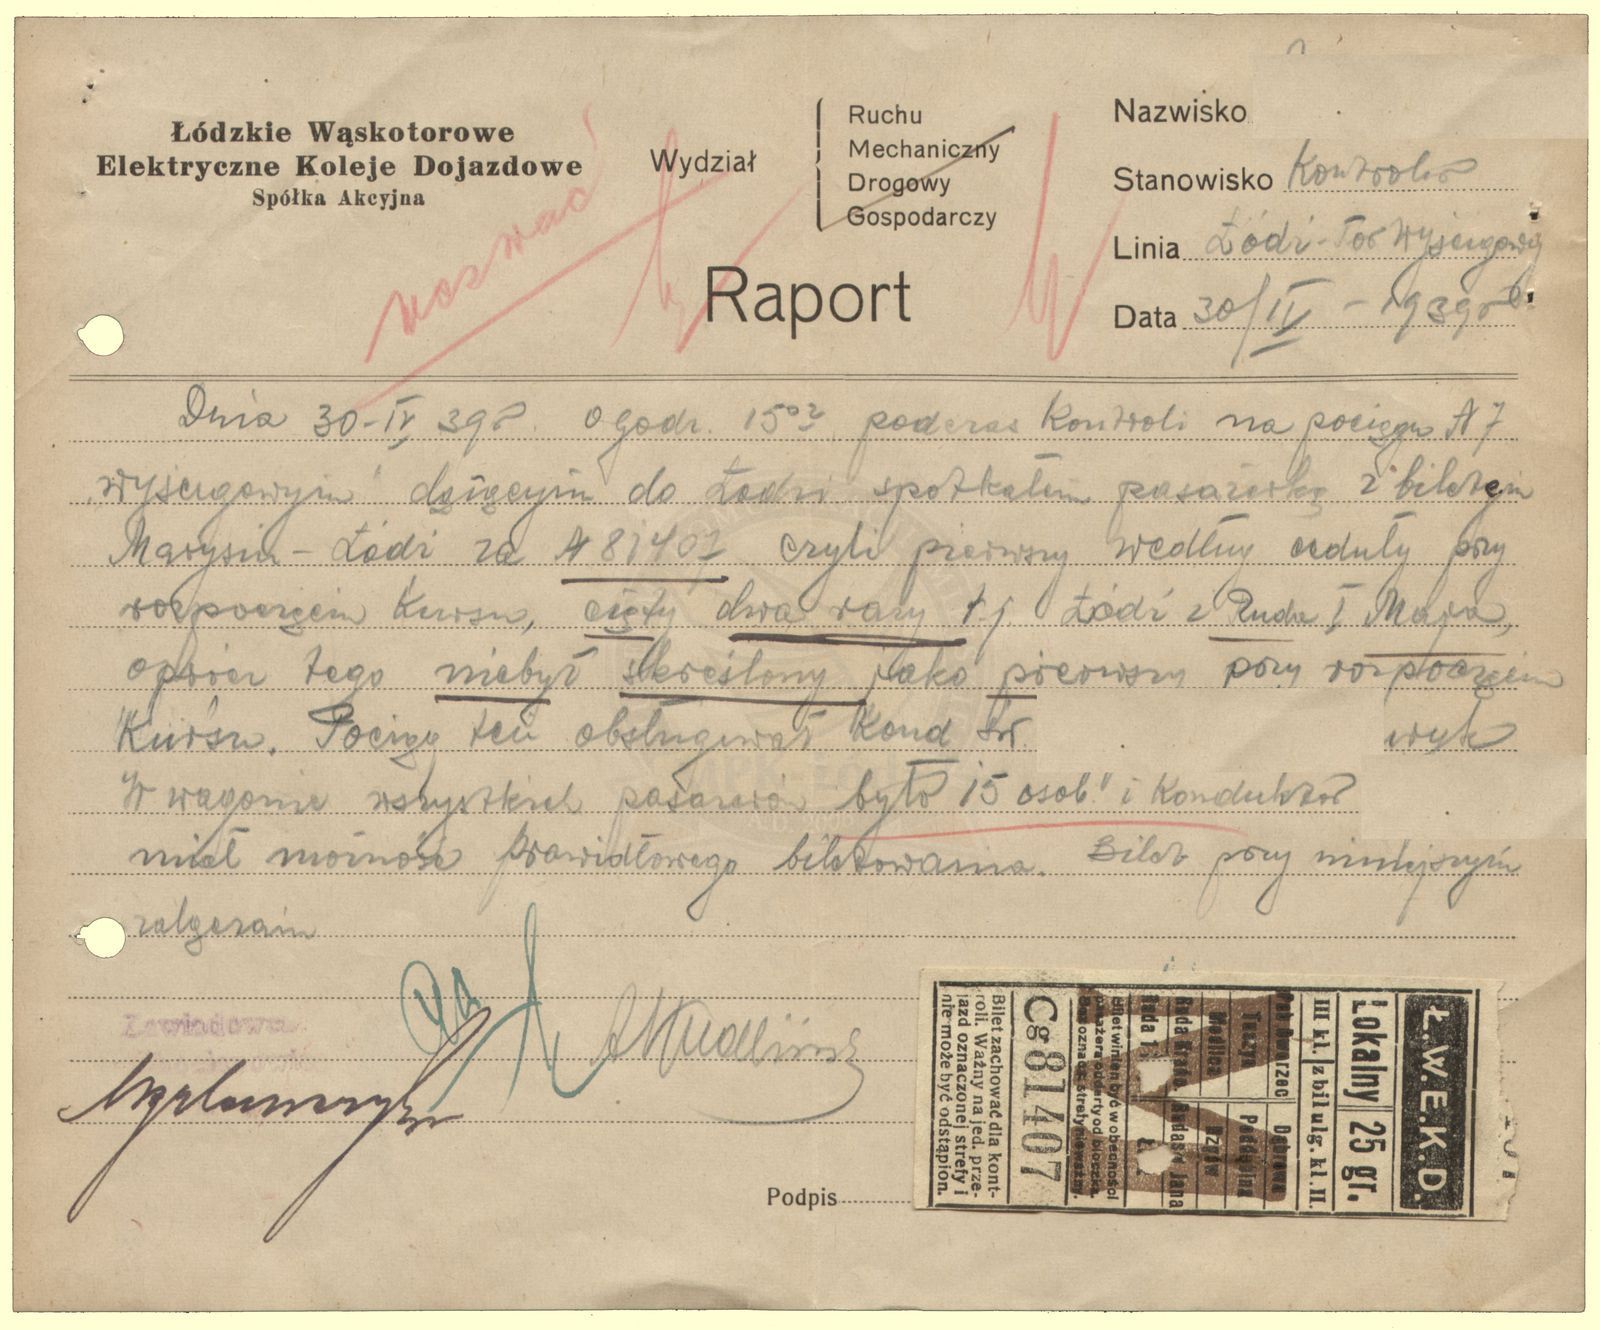 Łódzkie Wąskotorowe
Elektryczne Koleje Dojazdowe
Spółka Akcyjna
wezwać
Wydział
Ruchu
Mechaniczny
Drogowy
Gospodarczy
Raport
Nazwisko
Stanowisko Kontroler
Linia Łódź-Tor Wyścigowy
Data 30/IV - 1939 r.
Dnia 30-IV 39 r. o godz. 15⁰² podczas Kontroli na pociągu A 7
"wyścigowym" dążącym do Łodzi spotkałem pasażerkę z biletem
Marysin - Łódź za № 81407 czyli pierwszy według ceduły przy
rozpoczęciu Kursu, cięty dwa razy t.j. Łódź z Ruda I Maja,
oprócz tego niebył skreślony jako pierwszy przy rozpoczęciu
Kursu. Pociąg ten obsługiwał Kond
W wagonie wszystkich pasażerów było "15 osob" i Konduktor
miał możność prawidłowego biletowania. Bilet przy niniejszym
załączam
Zawiadowca
Podpis
Ł.W.E.K.D.
Lokalny 25 gr.
III kl. zbil ulg. kl. II.
Dąbrowa
Tuszyn Poddębina
Rzgów
Ruda 1 Ł
Bilet winien być w obecności
pasażera oddarty od bloczka.
Bez oznacz. strefy nieważny.
Cg 81407
Bilet zachować dla kont-
roli. Ważny na jed. prze-
jazd oznaczonej strefy i
nie może być odstąpion.